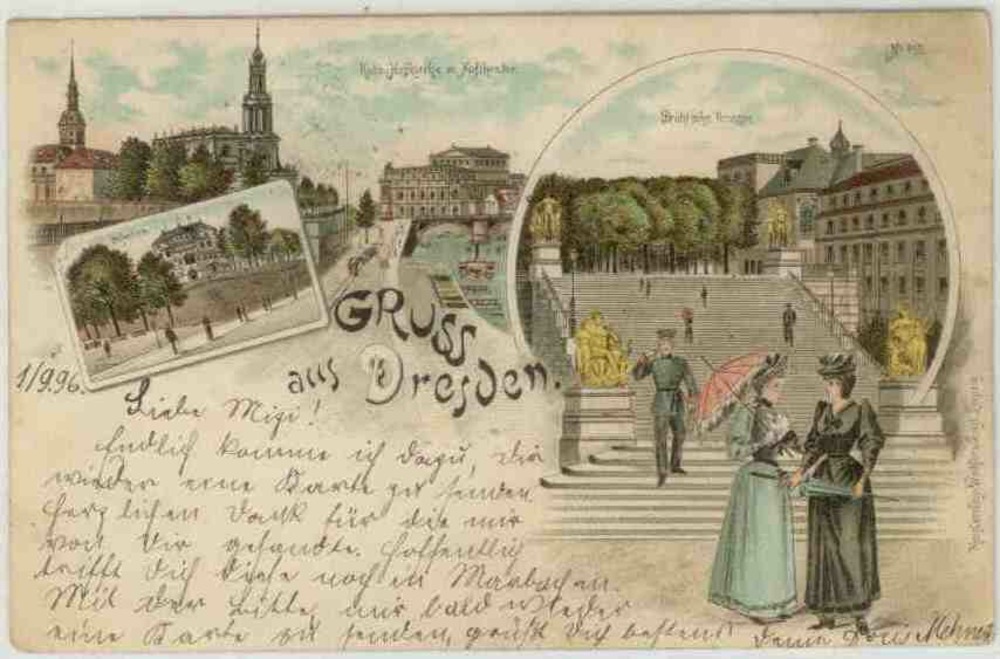 No
Kath. Hofkirche u. Hoftheater.
Brühl'sche Terrasse
GRUSS
aus Dresden.
1/9.96.
Liebe Mizi!
Endlich komme ich dazu, Dir
wieder eine Karte zu senden
Herzlichen Dank für die mir
von Dir gesandte. Hoffentlich
trifft Dich diese noch in
Mit der Bitte, mir bald wieder
eine Karte zu senden, grüßt Dich bestens Deine Doris